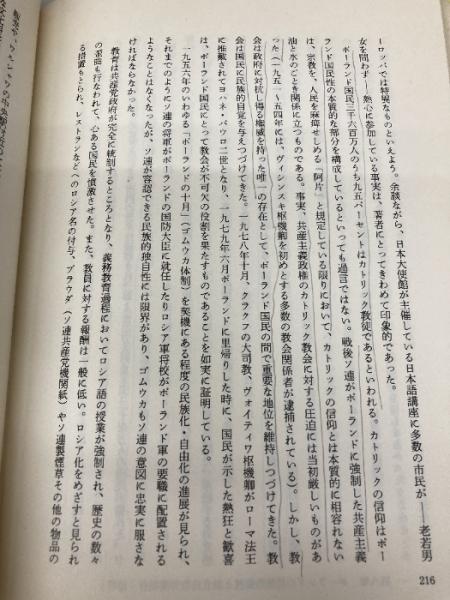 ーロッパでは特異なものといえよう。余談ながら、日本大使館が主催している日本語講座に多数の市民が――老若男
女を問わず――熱心に参加している事実は、著者にとってきわめて印象的であった。
ポーランド国民三千六百万人のうち九五パーセントはカトリック教徒であるといわれる。カトリックの信仰はポー
ランド国民性の本質的な部分を構成しているといっても過言ではない。戦後ソ連がポーランドに強制した共産主義
は、宗教を、人民を麻痺せしめる「阿片」と規定している限りにおいて、カトリックの信仰とは本質的に相容れない
油と水のごとき関係に立つものである。事実、共産主義政権のカトリック教会に対する圧迫には当初厳しいものがあ
った（一九五一〜五四年には、ヴィシンスキ枢機卿を初めとする多数の教会関係者が逮捕されている）。しかし、教
会は政府に対抗し得る権威を持った唯一の存在として、ポーランド国民の間で重要な地位を維持しつづけてきた。教
会は国民に民族的自覚を与えつづけてきた。一九七八年十月、クラクフの大司教、ヴォイティワ枢機卿がローマ法王
に推戴されてヨハネ・パウロ二世となり、一九七九年六月ポーランドに里帰りした時に、国民が示した熱狂と歓喜
は、ポーランド国民にとって教会が不可欠の役割を果たすものであることを如実に証明している。
一九五六年のいわゆる「ポーランドの十月」（ゴムウカ体制）を契機にある程度の民族化・自由化の進展が見られ、
それまでのようにソ連の将軍がポーランドの国防大臣に就任したりロシア軍将校がポーランド軍の要職に配置される
ようなことはなくなったが、ソ連が容認できる民族的独自性には限界があり、ゴムウカもソ連の意図に忠実に服さな
ければならなかった。
教育は共産党政府が完全に統制するところとなり、義務教育過程においてロシア語の授業が強制され、歴史の数々
の歪曲も行なわれて、心ある国民を憤激させた。また、教員に対する報酬は一般に低い。ロシア化をめざすと見られ
る措置もとられ、レストランなどへのロシア名の付与、プラウダ（ソ連共産党機関紙）やソ連製煙草その他の物品の
216